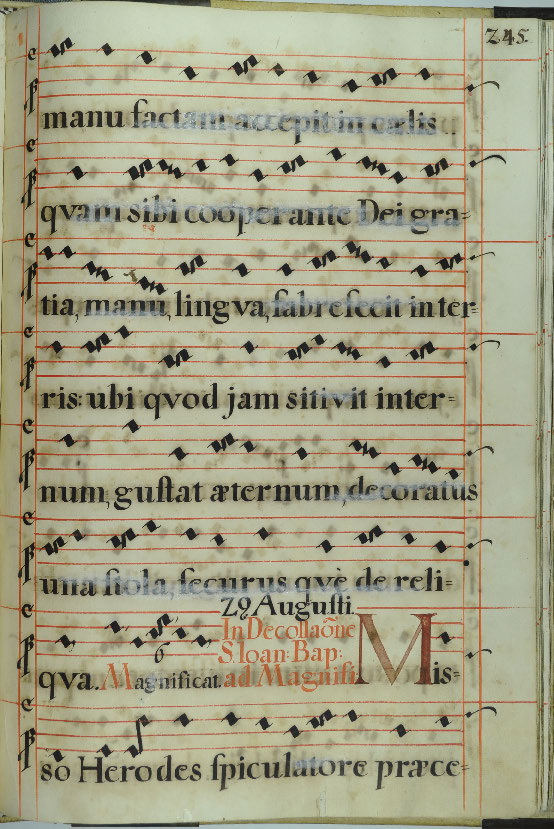 245.
manu factam accepit in cælis
qvam sibi cooperante Dei gra-
tia, manu, lingva, fabrefecit in ter-
ris: ubi qvod jam sitivit inter-
num, guſtat æternum, decoratus
una ſtola, ſecurus qvè de reli-
29 Auguſti.
In Decollaõne
S. Ioan: Bap:
6
qva. Magnificat. ad Magnifi. Mis-
so Herodes ſpiculatore præce-